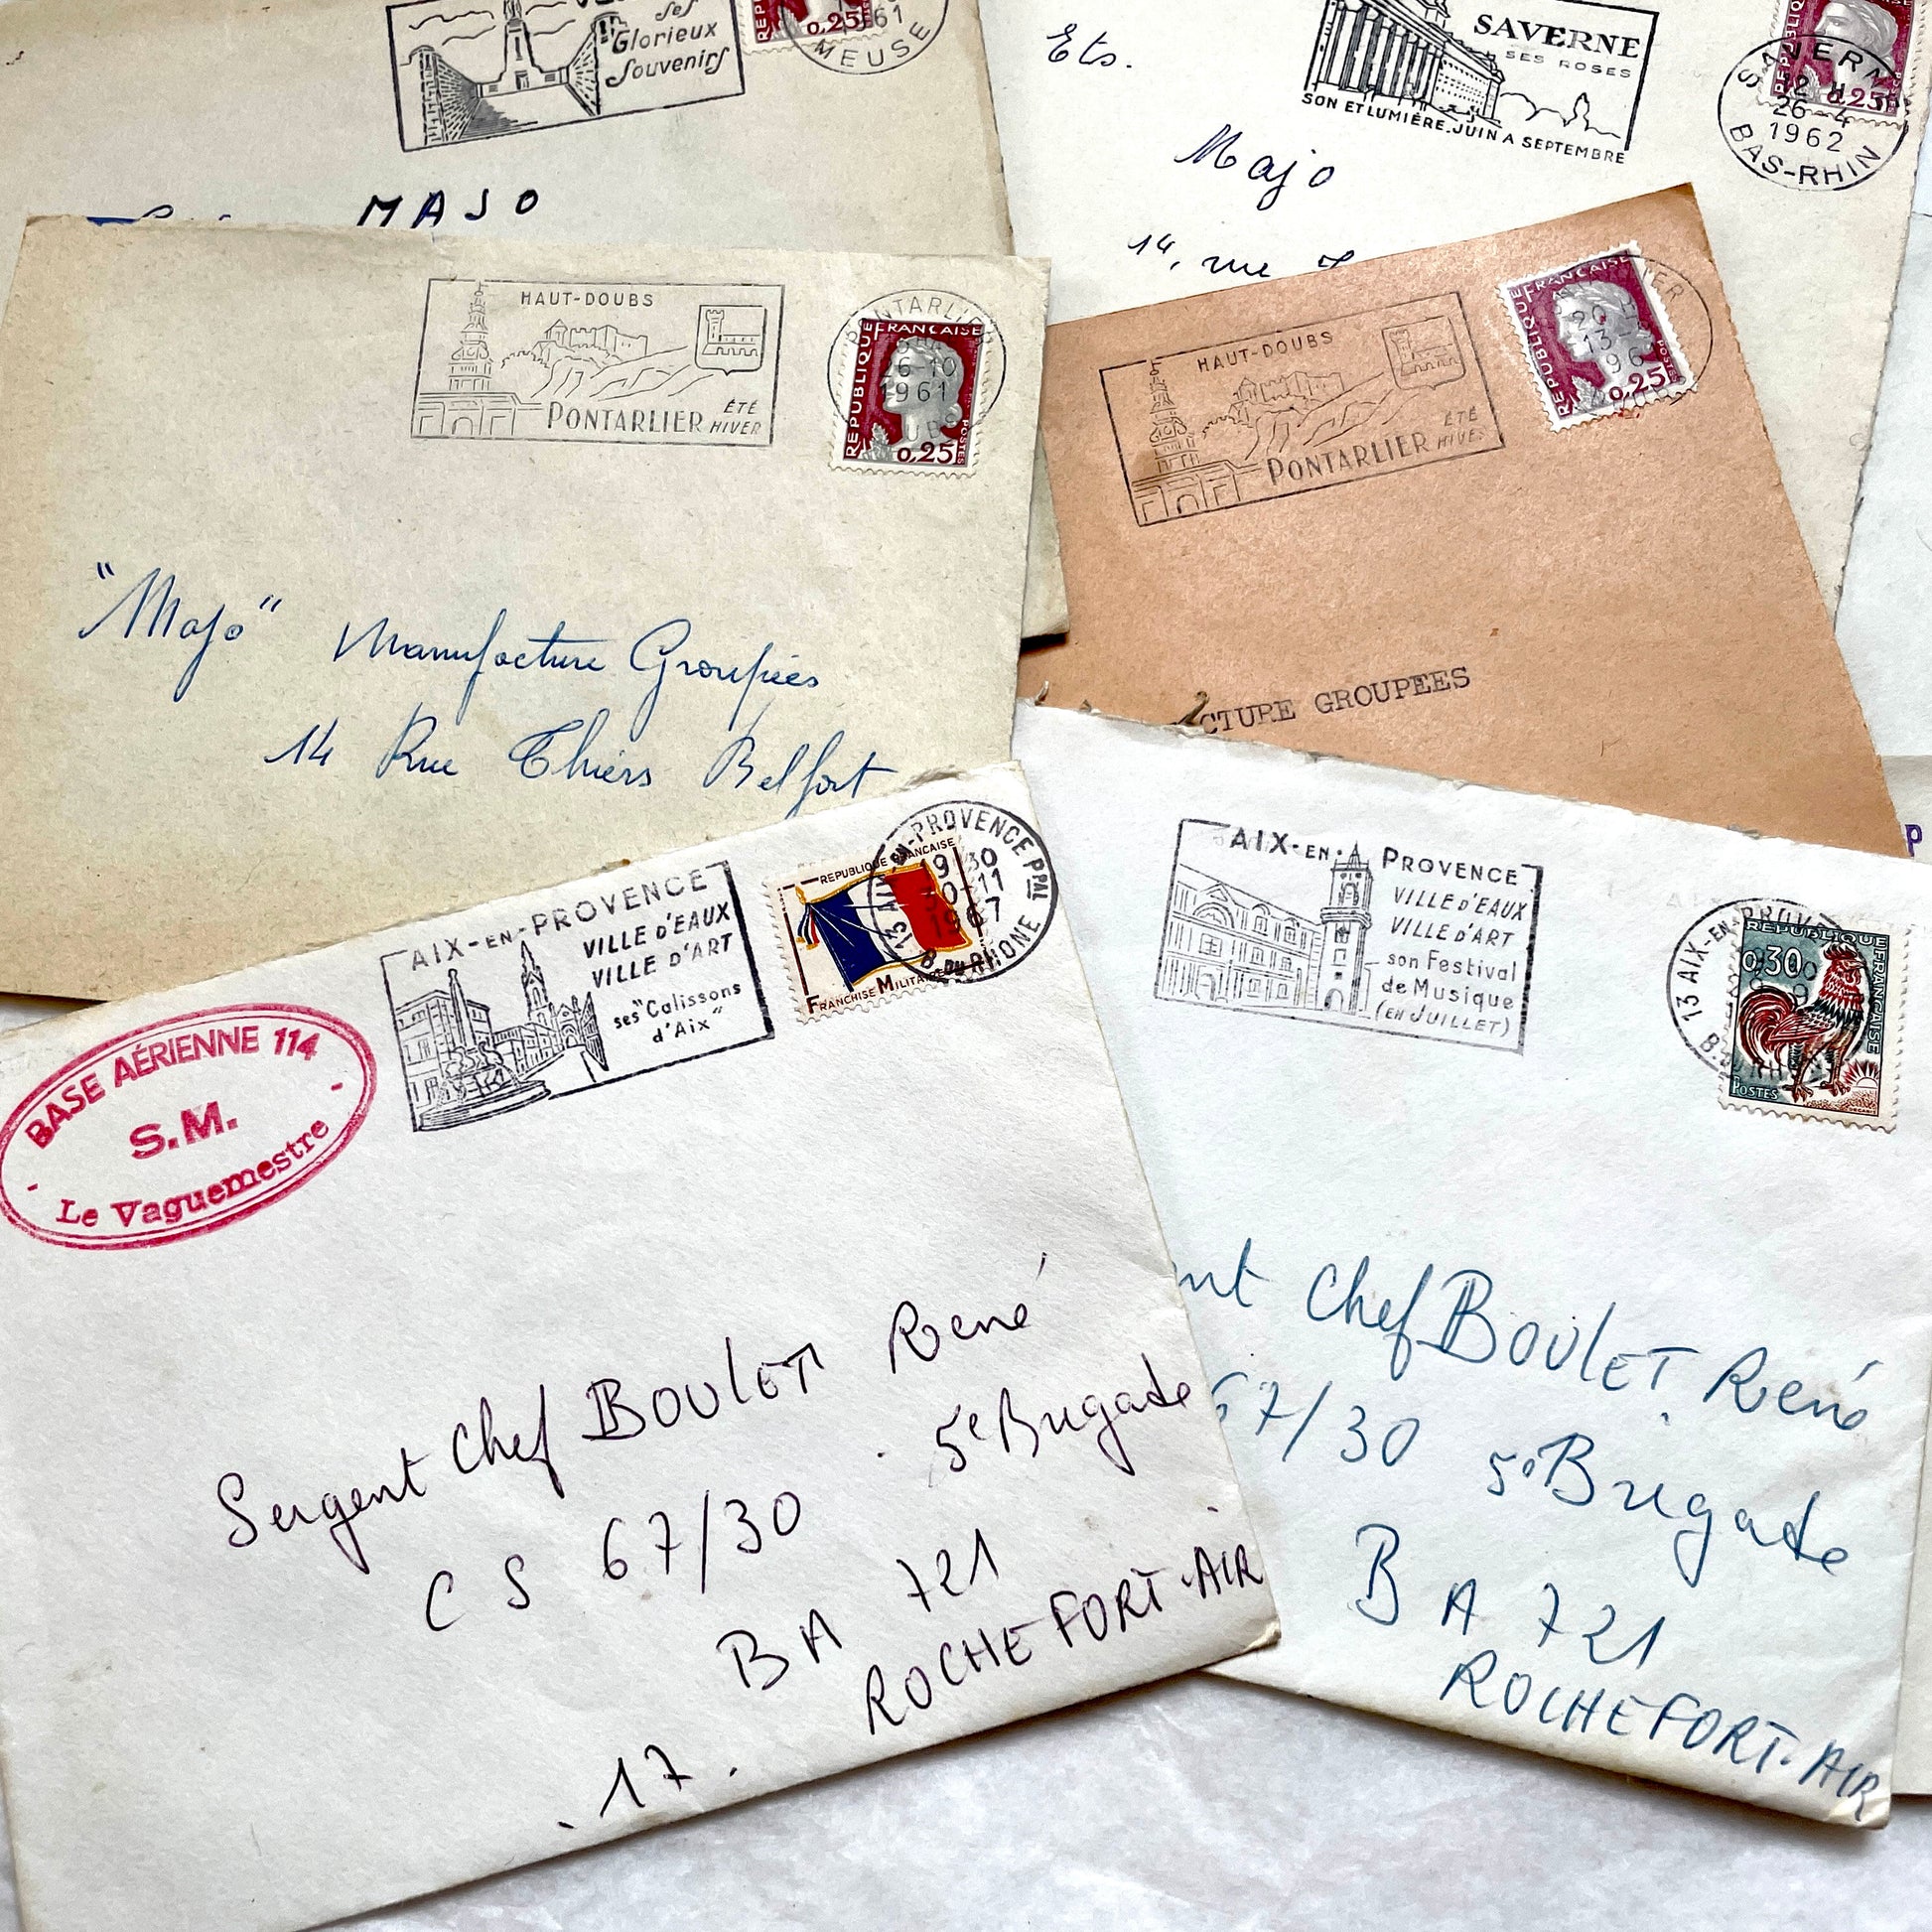 ses
Glorieux
Souvenirs
0,25
61
MEUSE
MAJO
Ets.
SAVERNE
SES ROSES
SON ET LUMIÈRE. JUIN A SEPTEMBRE
0,25
SAVERNE
12 H
26-4
1962
BAS-RHIN
Majo
14, rue
HAUT-DOUBS
PONTARLIER
ÉTÉ
HIVER
PONTARLIER
26-10
1961
RÉPUBLIQUE FRANÇAISE
POSTES
0,25
"Majo" Manufacture Groupées
14 Rue Thiers Belfort
HAUT-DOUBS
PONTARLIER
ÉTÉ
HIVER
20 H
13
196
RÉPUBLIQUE FRANÇAISE
POSTES
0,25
CTURE GROUPEES
AIX-EN-PROVENCE
VILLE D'EAUX
VILLE D'ART
ses "Calissons
d'Aix"
REPUBLIQUE FRANCAISE
FRANCHISE MILITAIRE
13 AIX-EN-PROVENCE PPAL
9 30
30-11
1967
B. DU RHONE
BASE AÉRIENNE 114
S.M.
- Le Vaguemestre -
Sergent Chef BOULET René
CS 67/30 5e Brigade
BA 721
ROCHEFORT-AIR
17.
AIX-EN-PROVENCE
VILLE D'EAUX
VILLE D'ART
son Festival
de Musique
(EN JUILLET)
13 AIX-EN-PROVE
B. DU RHONE
RÉPUBLIQUE FRANÇAISE
0,30
POSTES
nt Chef BOULET René
67/30 5e Brigade
BA 721
ROCHEFORT-AIR
P